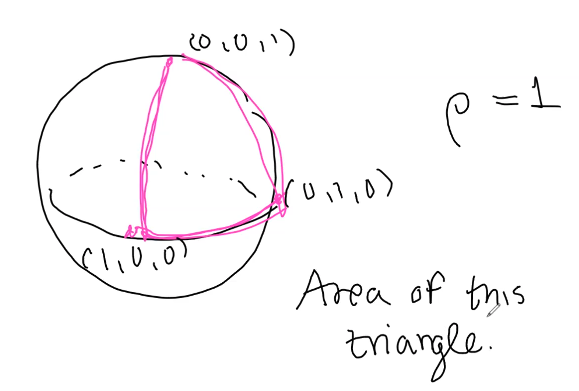 (0,0,1)
ρ = 1
(0,1,0)
(1,0,0)
Area of this
triangle.